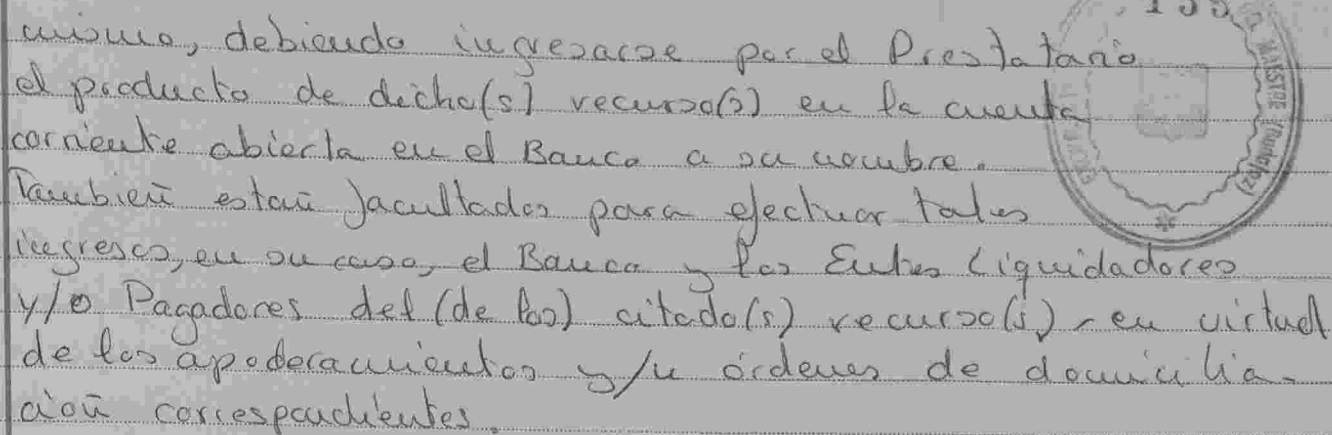 mismo, debiendo ingresarse por el Prestatario
el producto de dicho(s) recurso(s) en la cuenta
corriente abierta en el Banco a su nombre.
También están facultados para efectuar tales
ingresos, en su caso, el Banco y los Entes Liquidadores
y/o Pagadores del (de los) citado(s) recurso(s) - en virtud
de los apoderamientos y/u órdenes de domicilia-
ción correspondientes.
MAESTRE